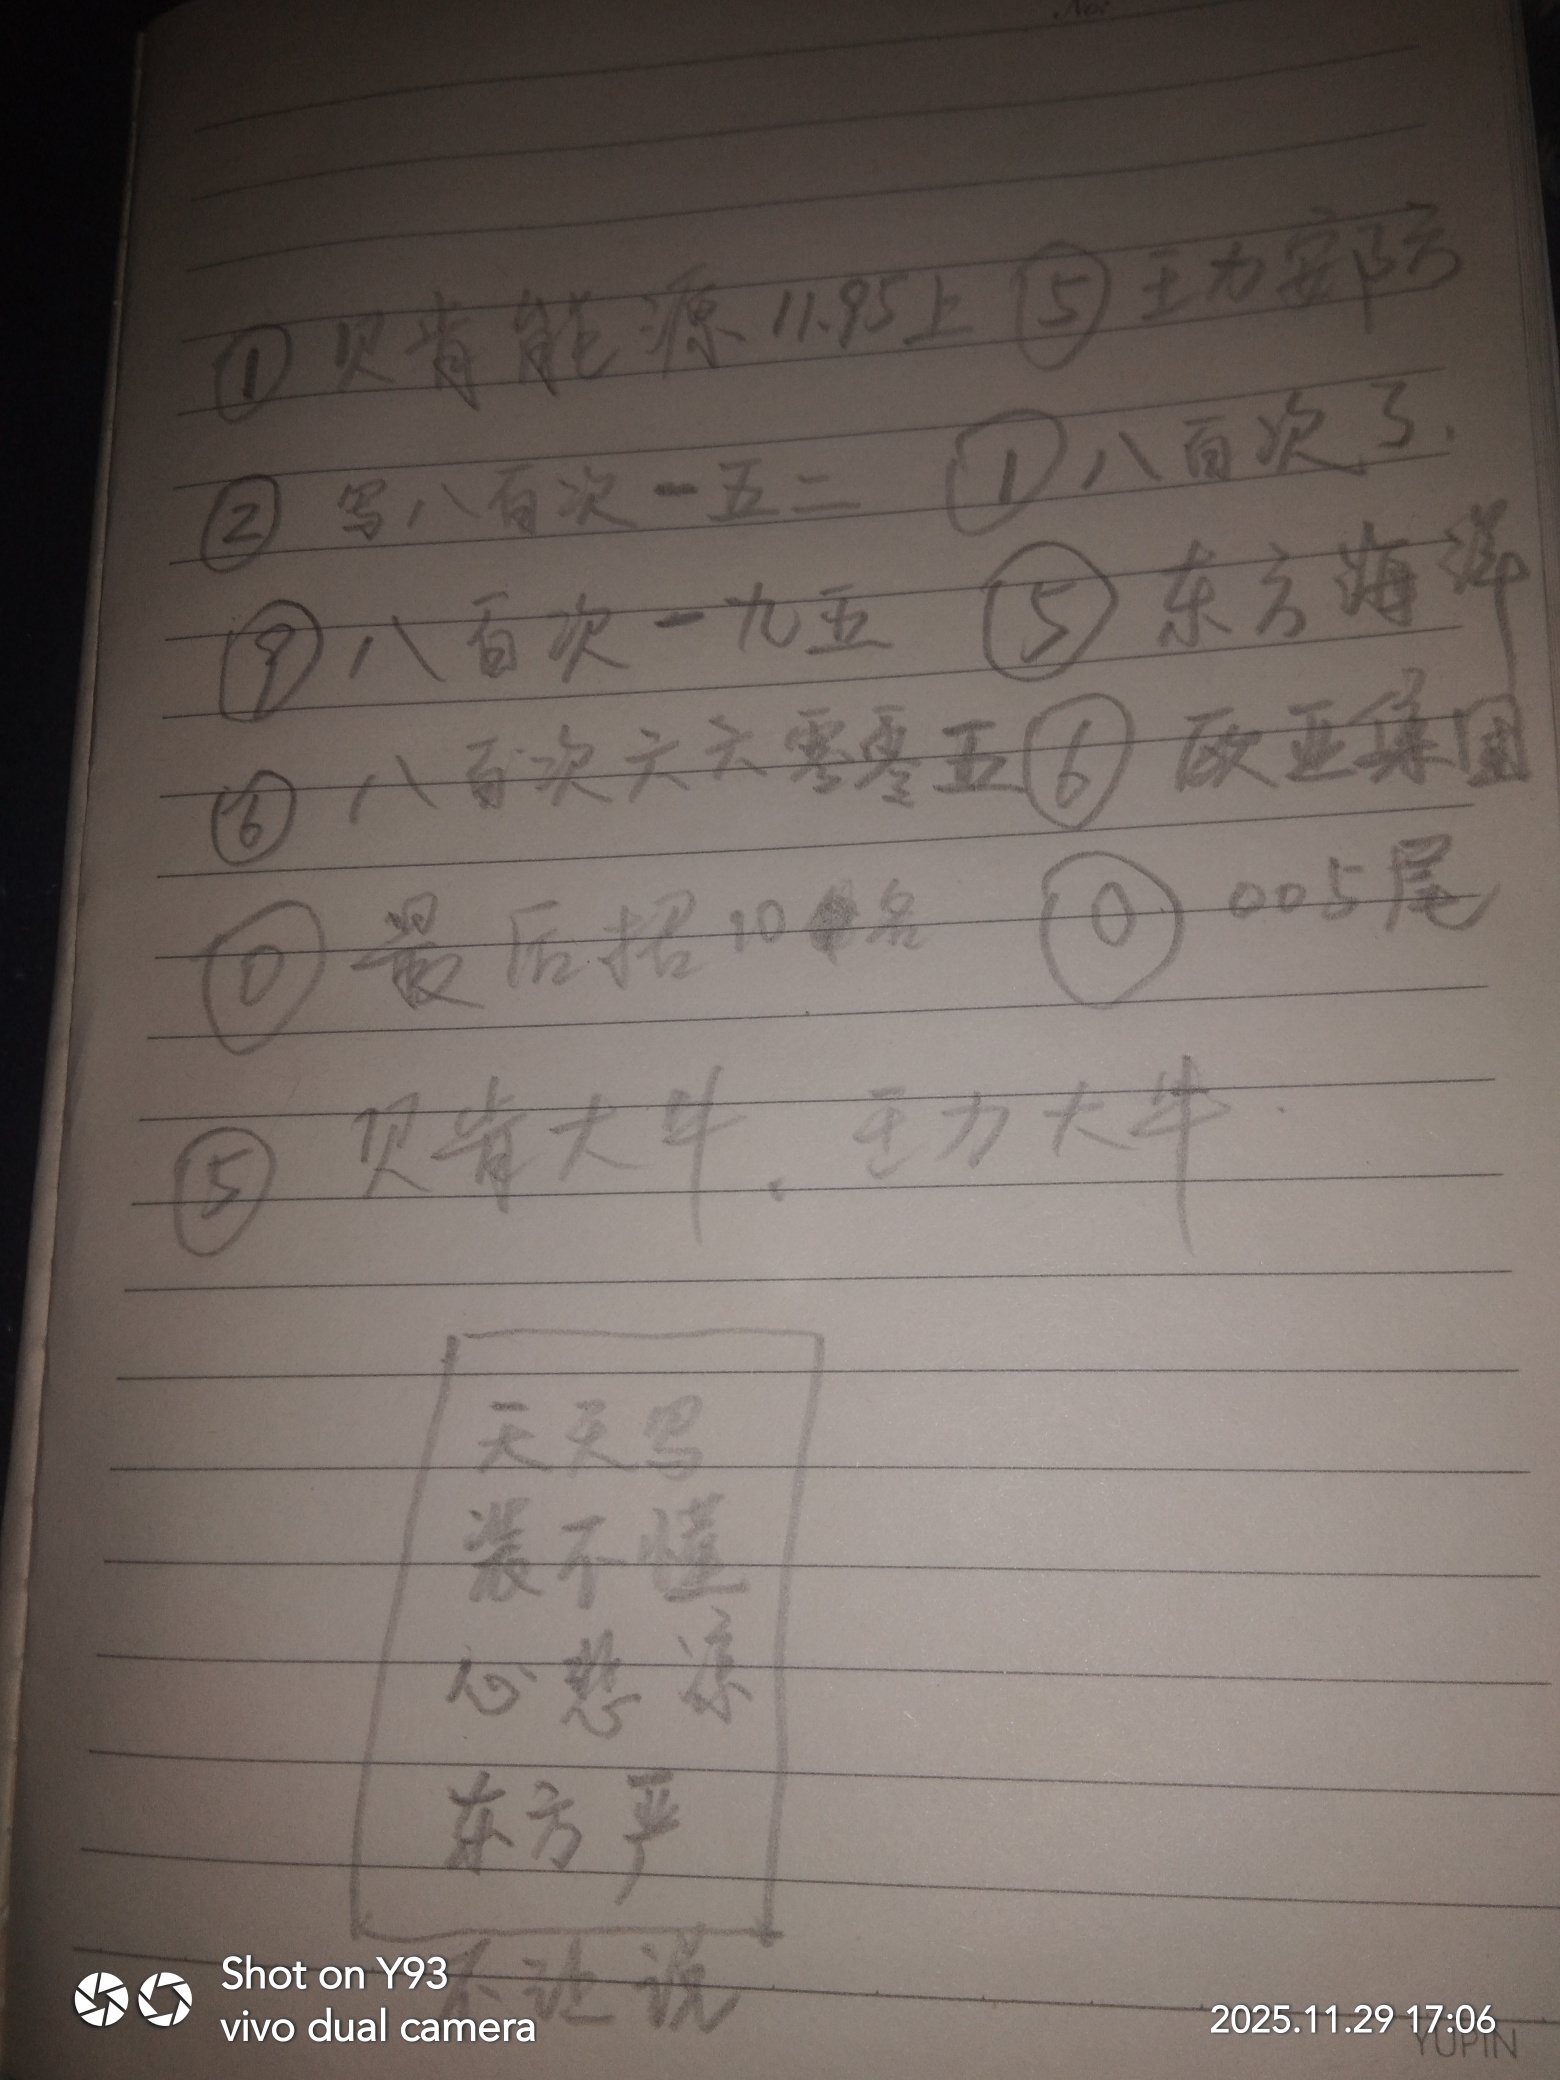 No:
① 贝肯能源 11.95上 ⑤ 王力安防
② 写八百次一五二 ① 八百次了.
⑨ 八百次一九五 ⑤ 东方海洋
⑥ 八百次六六零零五 ⑥ 欧亚集团
⓪ 最后招10名 ⓪ 005尾
⑤ 贝肯大牛、王力大牛.
天天写
装不懂
心悲凉
东方严
不让说
Shot on Y93
vivo dual camera
2025.11.29 17:06
YUPIN